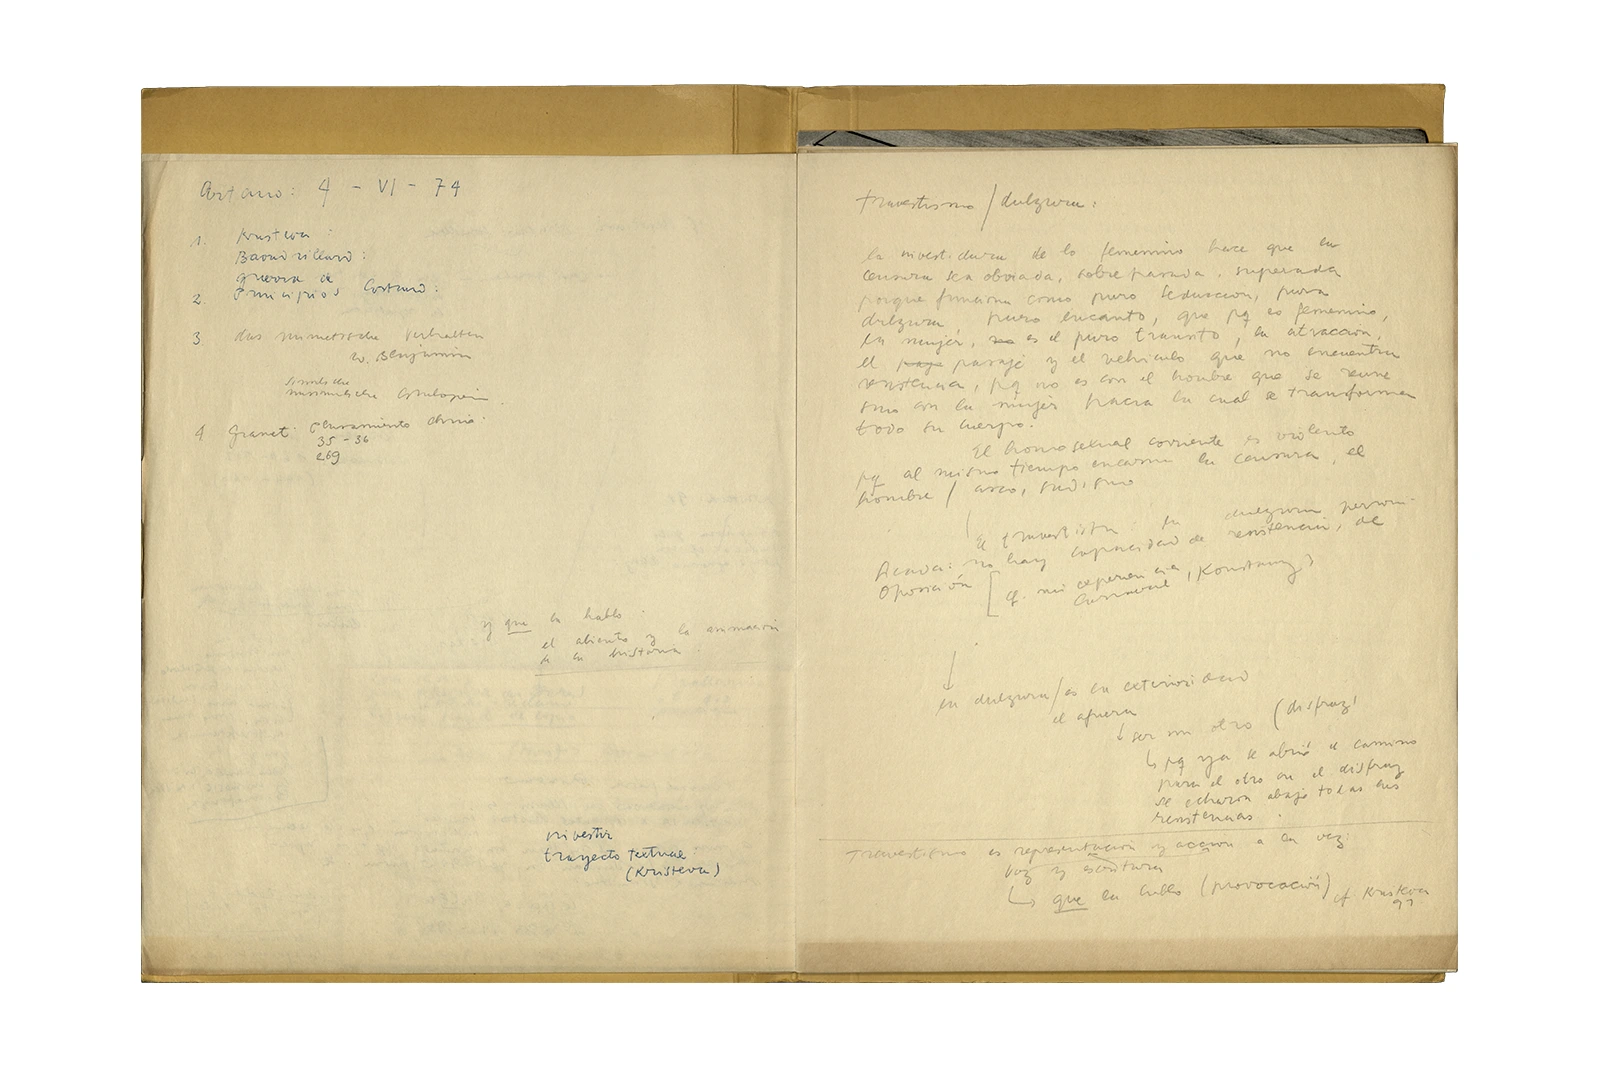 4 - VI - 74
1. Kristeva :
Baoudrillard :
guerra de
2. Principios
3 das mimetische Verhalten
W. Benjamin
mimetische
4 Granet:
35 - 36
269
y que la habla
el aliento y la animación
de la historia
investir
trayecto textual
(Kristeva)
travestismo / dulzura :
la investidura de lo femenino hace que la
censura sea obviada, sobrepasada, superada
porque funciona como pura seducción, pura
dulzura, puro encanto, que pq lo femenino,
la mujer, es el puro transito, la atracción,
el pasaje y el vehiculo que no encuentra
resistencia, pq no es con el hombre que se reune
sino con la mujer hacia la cual se transforma
todo su cuerpo.
El homosexual corriente es violento
pq al mismo tiempo encarna la censura, el
hombre / asco, sadismo
El travestista : la dulzura
no hay capacidad de resistencia, de
oposición [cf. mi experiencia
carnaval, Konstanz)
la dulzura / es la exterioridad
el afuera
ser un otro (disfraz)
pq ya se abrió el camino
para el otro en el disfraz
se echaron abajo todas las
resistencias.
Travestismo es representación y acción a la vez:
voz y escritura
que la habla (provocación) cf. Kristeva
97